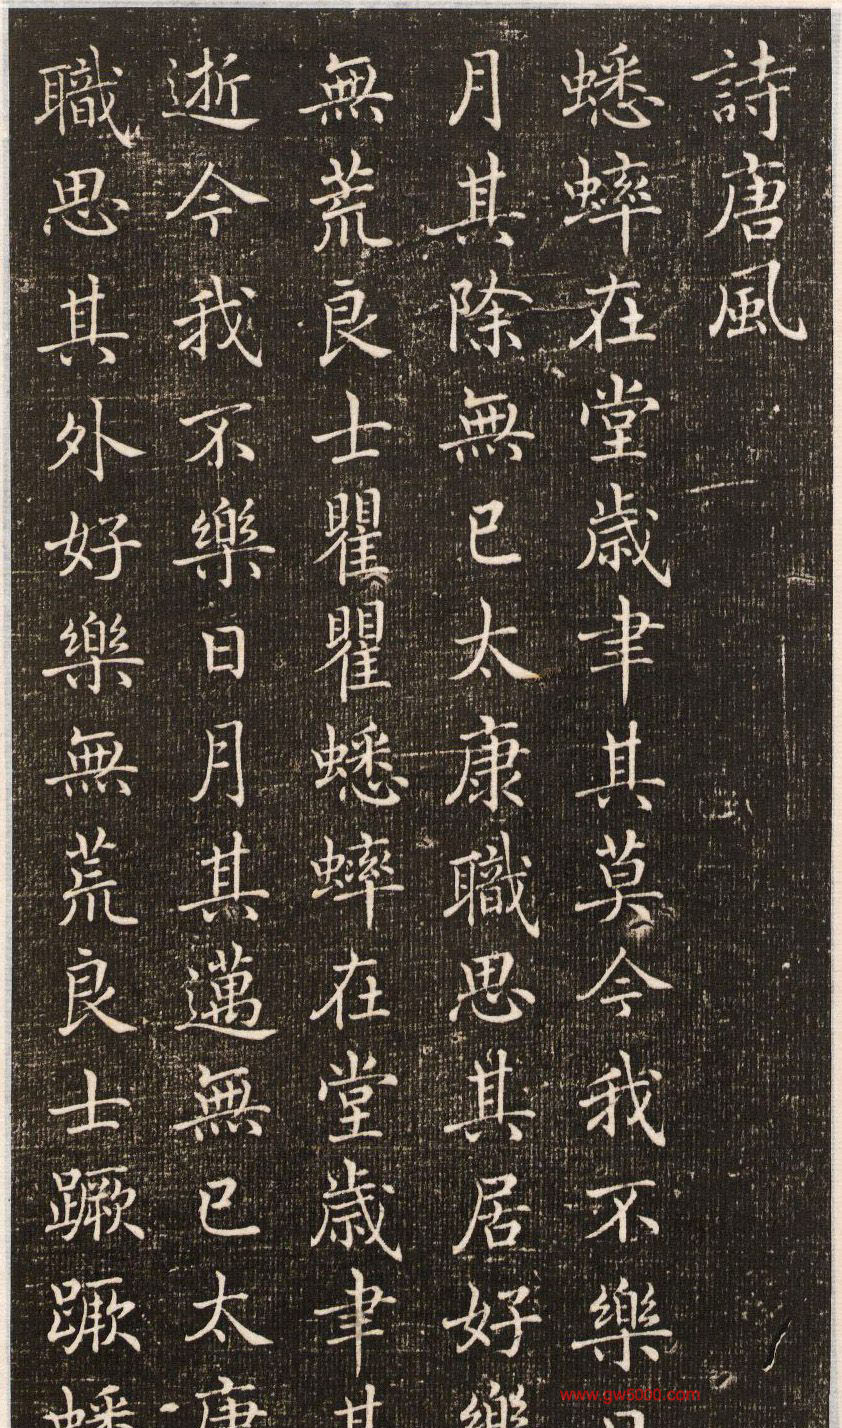 詩唐風
蟋蟀在堂歲聿其莫今我不樂日
月其除無已太康職思其居好樂
無荒良士瞿瞿蟋蟀在堂歲聿其
逝今我不樂日月其邁無已太康
職思其外好樂無荒良士蹶蹶蟋
www.gw5000.com